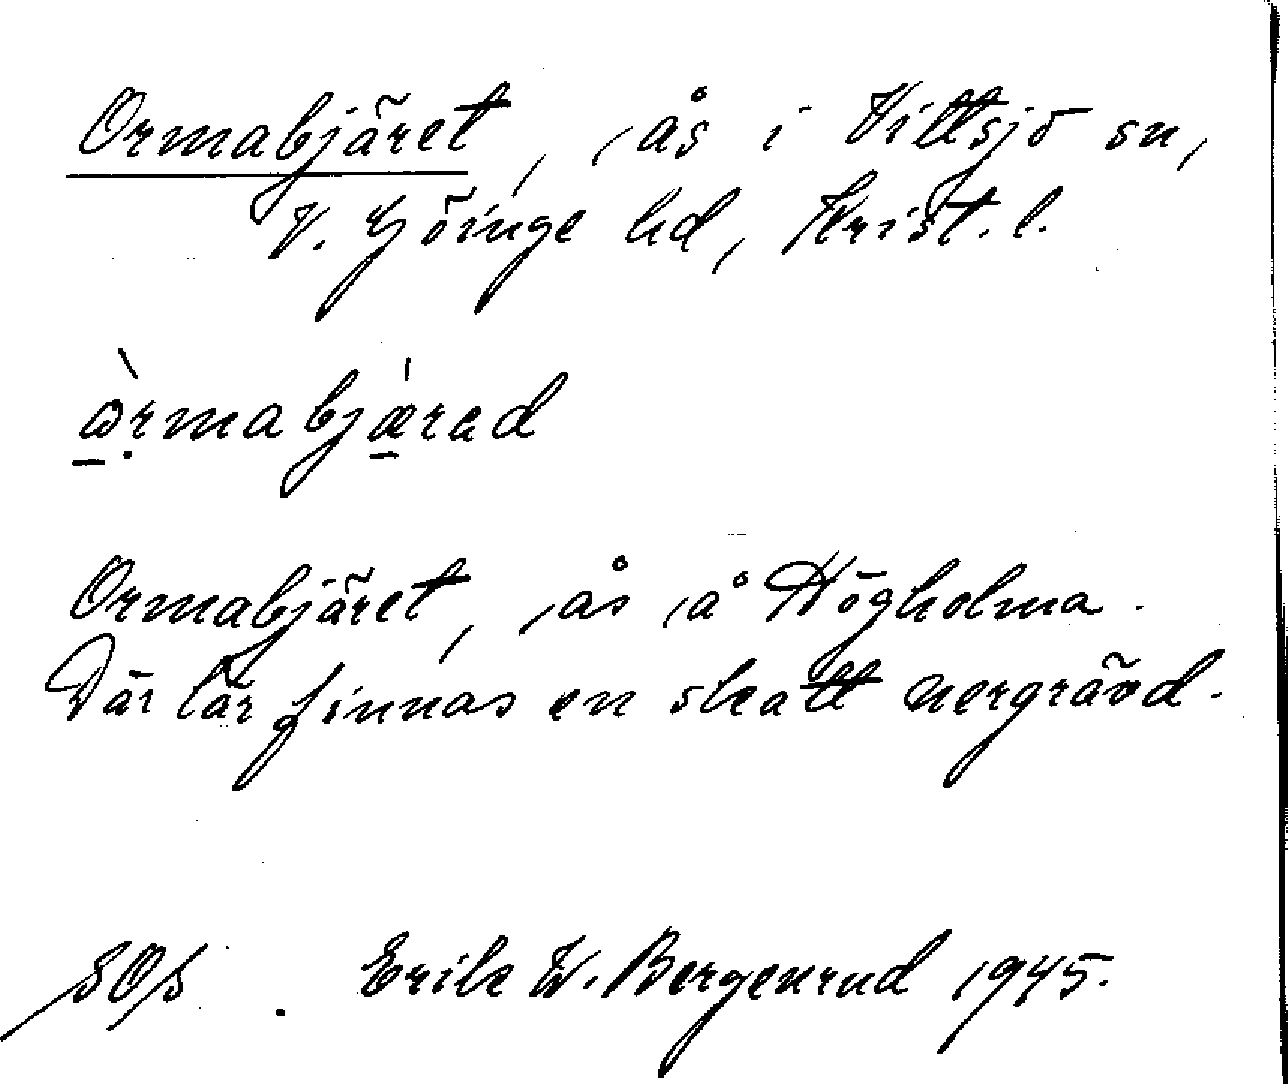 Ormabjäret, ås i Vittsjö sn,
V. Göinge hd, Krist. l.
Ormabjäret, ås å Högholma.
Där lär finnas en skatt nergrävd.
Erik W. Bergenrud 1945.